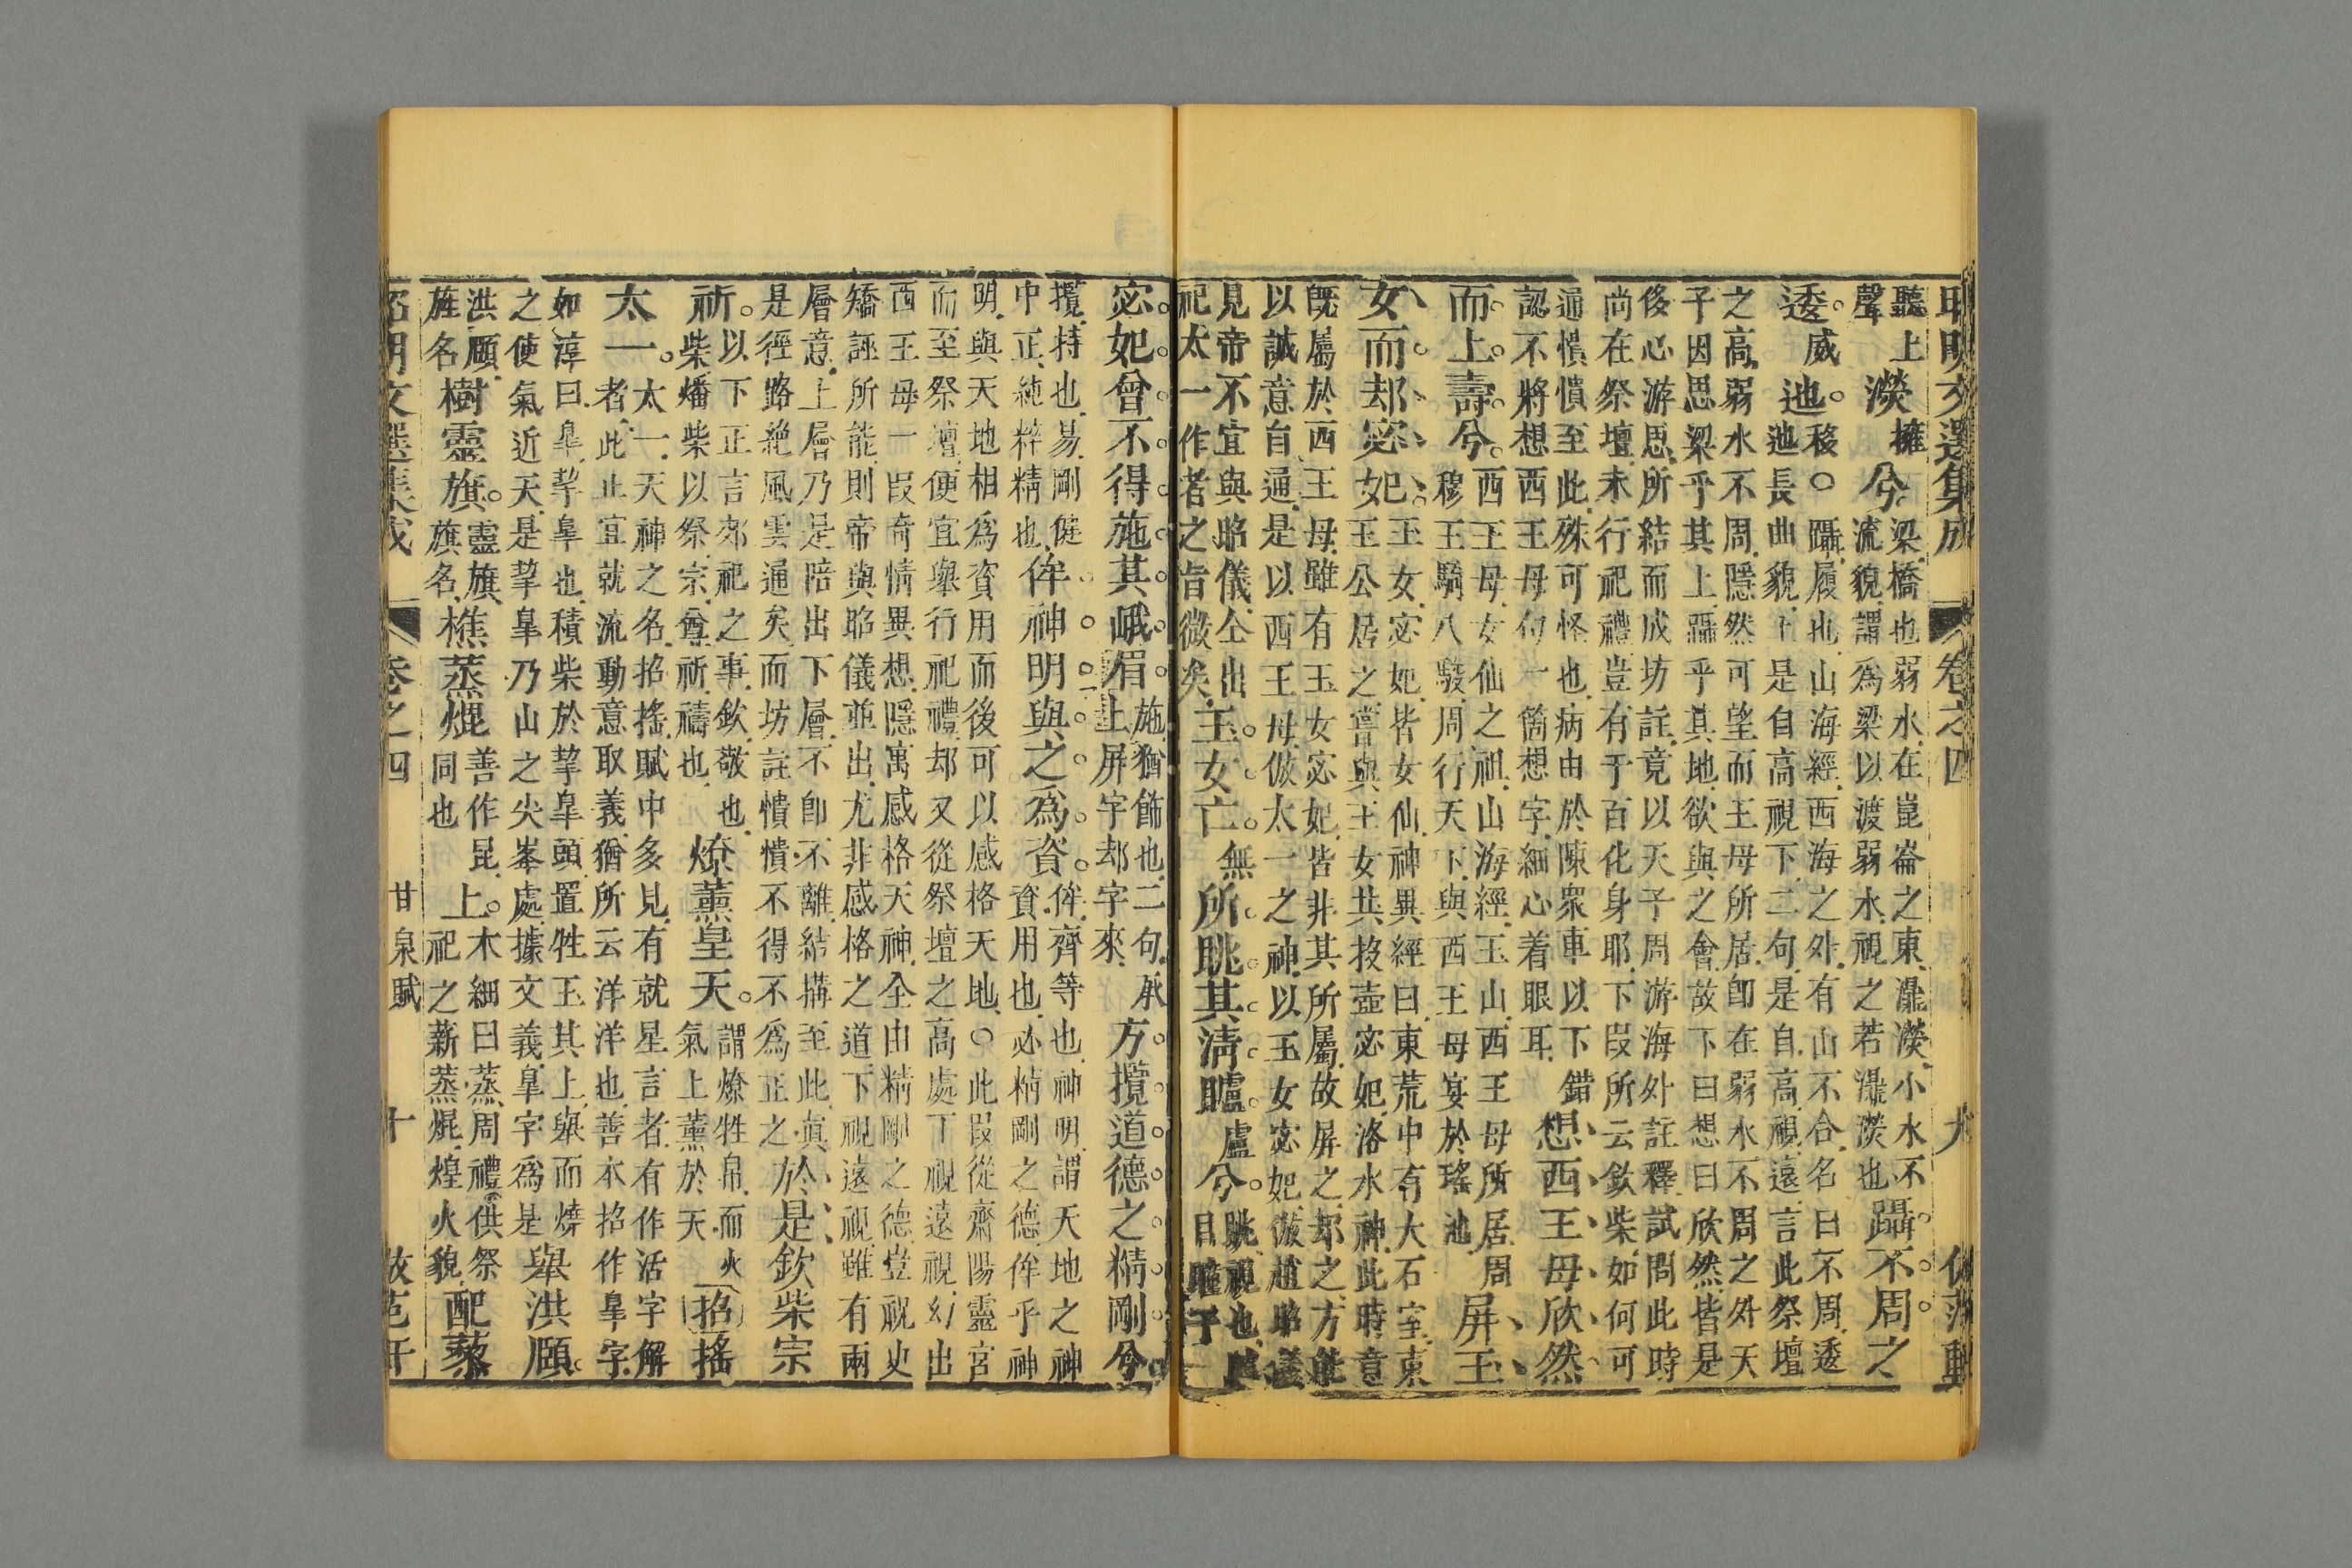 昭明文選集成 卷之四 九 倣范軒
聽上
聲
濙擁兮
梁橋也弱水在崑崙之東灅濙小水不
流貌謂為梁以渡弱水視之若灅濙也
躡不周之
逶威池移○
躡履也山海經西海之外有山不合名曰不周逶
池長曲貌上是自高視下二句是自高視遠言此祭壇
之高弱水不周隱然可望而王母所居即在弱水不周之外天
子因思梁乎其上躡乎其地欲與之會故下曰想曰欣然皆是
侈心游思所結而成坊註竟以天子周游海外註釋試問此時
尚在祭壇未行祀禮豈有于百化身耶下段所云欽柴如何可
通憒憒至此殊可怪也病由於陳眾車以下錯
認不將想西王母句一箇想字細心着眼耳
想西王母欣然
而上壽兮
西王母女仙之祖山海經玉山西王母所居周
穆王騎八駿周行天下與西王母宴於瑤池
屏玉
女而却宓妃
玉女宓妃皆女仙神異經曰東荒中有大石室東
王公居之嘗與玉女共投壺宓妃洛水神此時意
既屬於西王母雖有玉女宓妃皆非其所屬故屏之却之方能
以誠意自通是以西王母倣太一之神以玉女宓妃倣趙昭儀
見帝不宜與昭儀仝出
祀太一作者之旨微矣
玉女亡無所眺其清矑盧兮
眺視也矑
目瞳子
宓妃曾不得施其峨眉
施猶飾也二句承
上屏字却字來
方攬道德之精剛兮
攬持也易剛健
中正純粹精也
侔神明與之為資
侔齊等也神明謂天地之神
資用也必楨剛之德侔乎神
明與天地相為資用而後可以感格天地○此段從齋陽靈宮
而至祭壇便宜舉行祀禮却又從祭壇之高處下視遠視幻出
西王母一段奇情異想隱寓感格天神全由精剛之德豈祝史
矯誣所能則帝與昭儀並出尤非感格之道下視遠視雖有兩
層意上層乃是陪出下層不即不離結搆至此真
是徑路絕風雲通矣而坊註憒憒不得不為正之
於是欽柴宗
祈
以下正言郊祀之事欽敬也
柴燔柴以祭宗尊祈禱也
燎薰皇天
謂燎牲帛而火
氣上薰於天
招搖
太一
太一天神之名招搖賦中多見有就星言者有作活字解
者此止宜就流動意取義猶所云洋洋也善本招作皐字
如淳曰皐挈皐也積柴於挈皐頭置牲玉其上舉而燒
之使氣近天是挈皐乃山之尖峯處據文義皐字為是
舉洪頤
洪頤
旌名
樹靈旗
靈旗
旗名
樵蒸焜
善作昆
同也
上
木細曰蒸周禮供祭
祀之薪蒸焜煌火貌
配藜
昭明文選集成 卷之四 甘泉賦 十 倣范軒